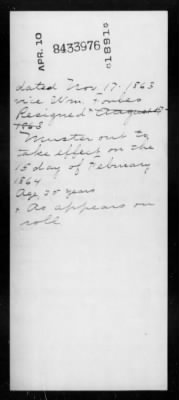 APR. 10
8433976
1891
dated Nov 17. 1863
vice Wm. Forbes
Resigned + August 5-
1863
Muster out to
take effect on the
15 day of February
1864
Age 25 years
+ As appears on
roll